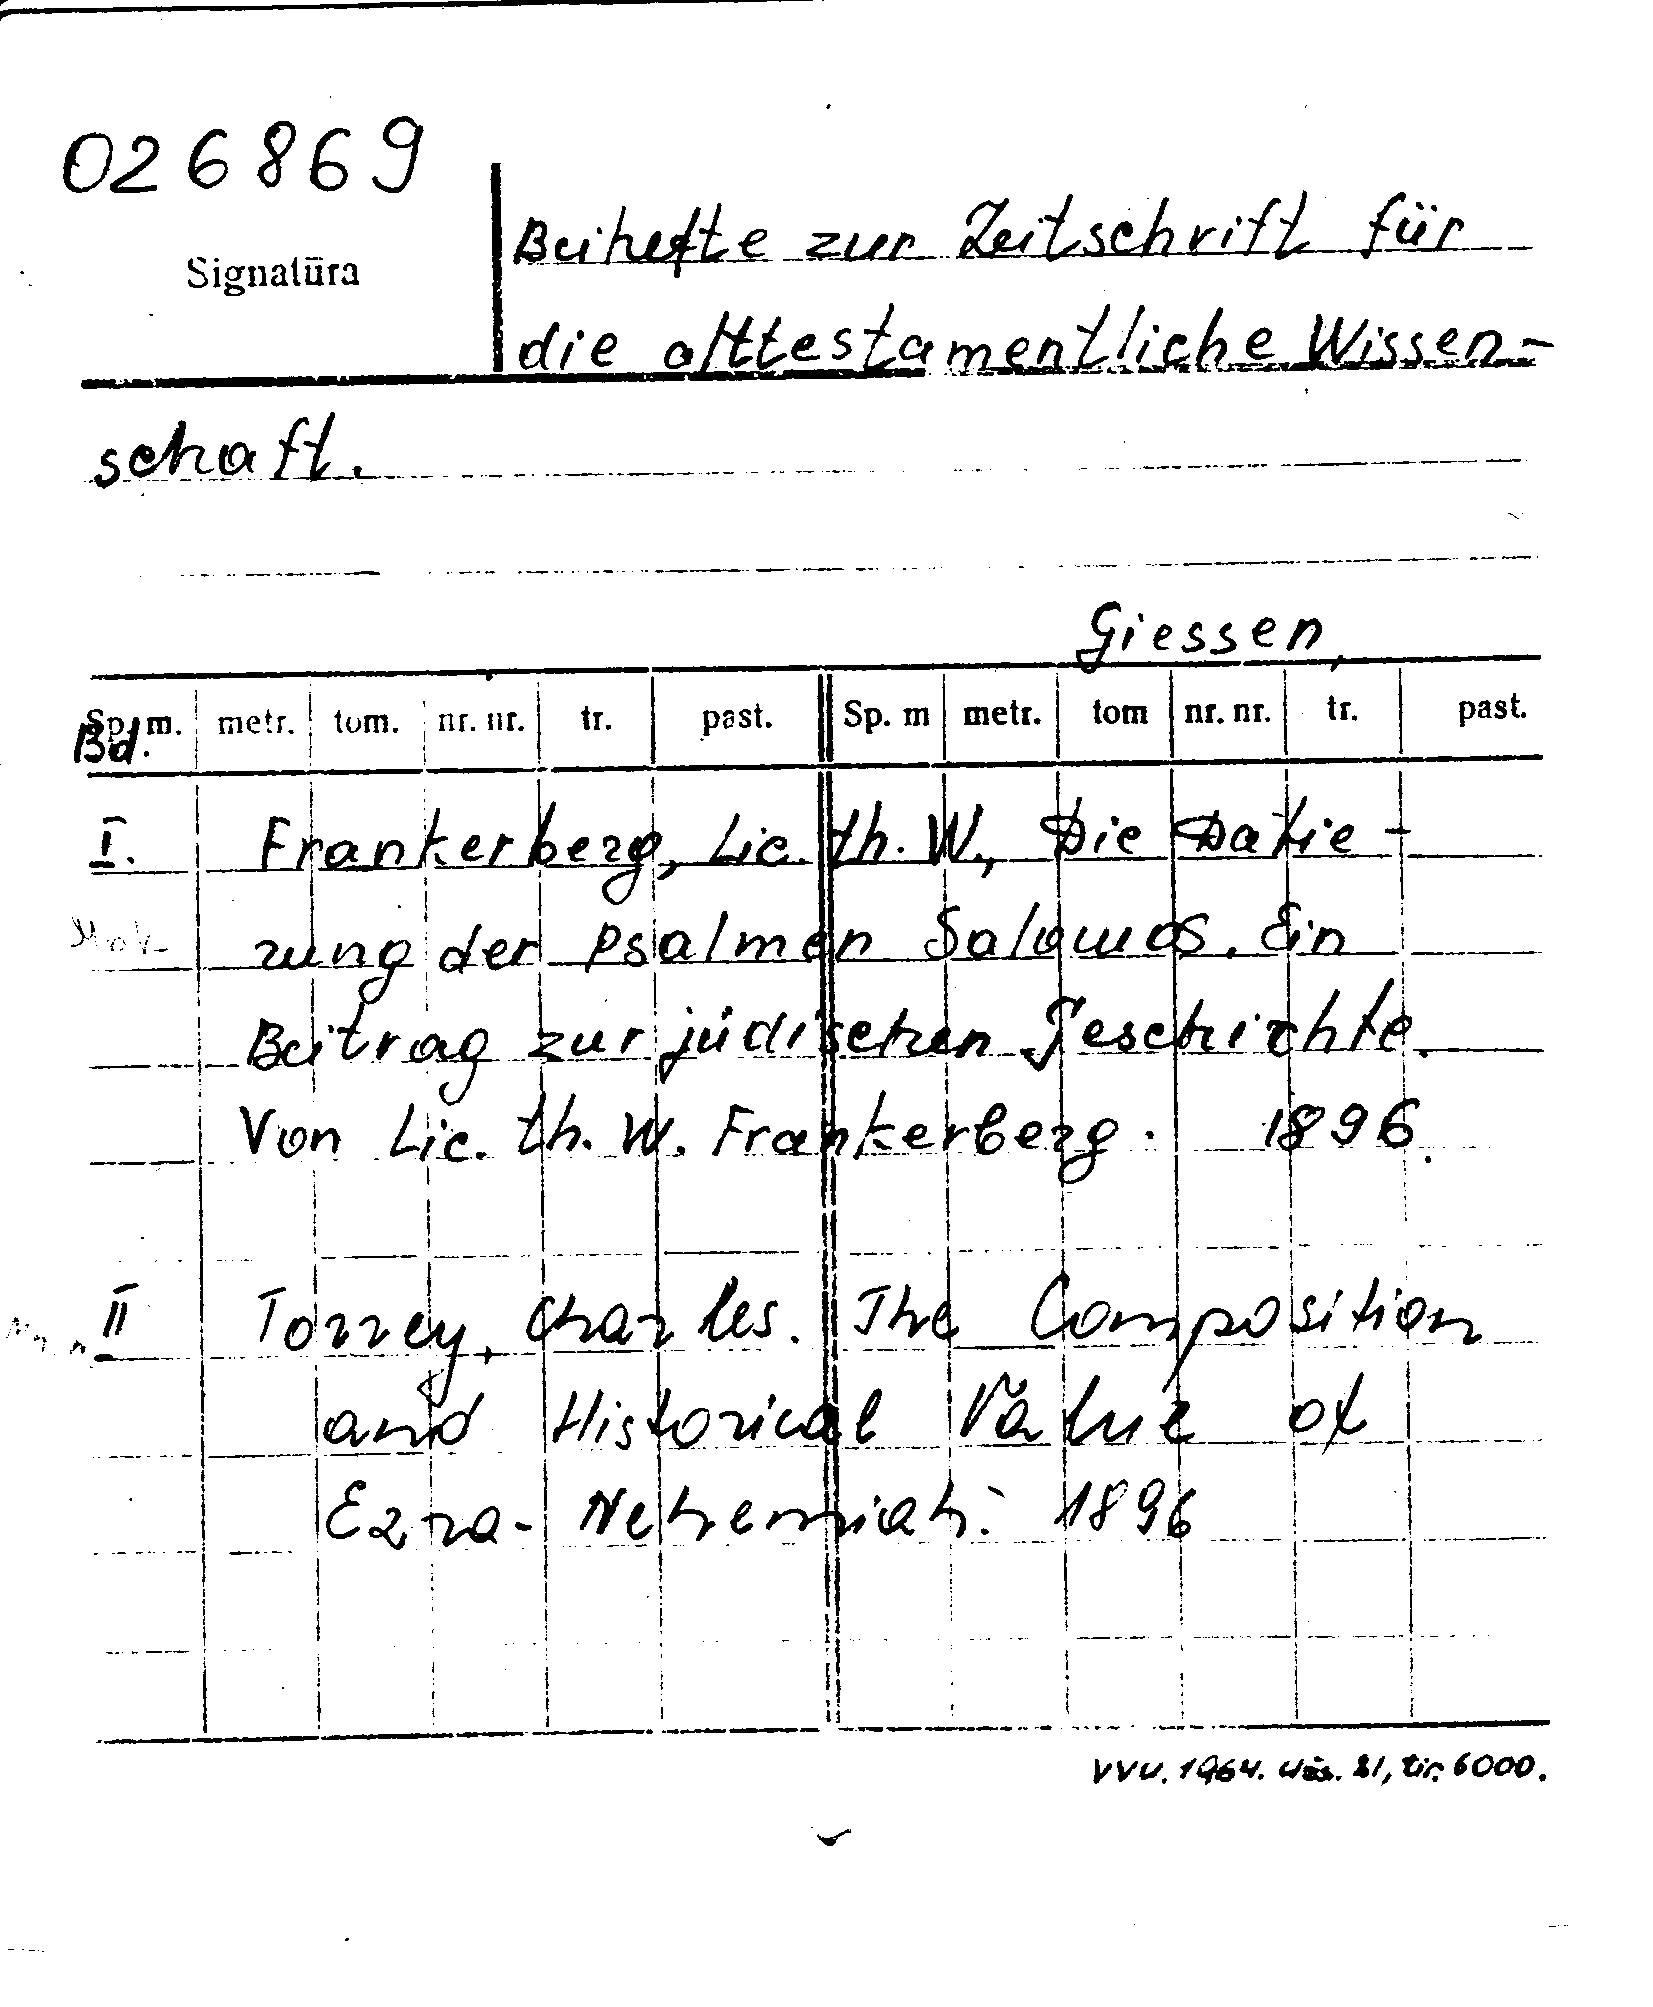 026869
Signatūra
Beihefte zur Zeitschrift für
die alttestamentliche Wissen-
schaft.
Giessen,
Sp. m. metr. tom. nr. nr. tr. past. Sp. m metr. tom nr. nr. tr. past.
Bd.
I. Frankerberg, Lic. th. W., Die Datie-
rung der Psalmen Salomos. Ein
Beitrag zur jüdischen Geschichte.
Von Lic. th. W. Frankerberg. 1896.
II Torrey, Charles. The Composition
and Historical Value of
Ezra-Nehemiah. 1896
VVU. 1964. Užs. 81, tir. 6000.